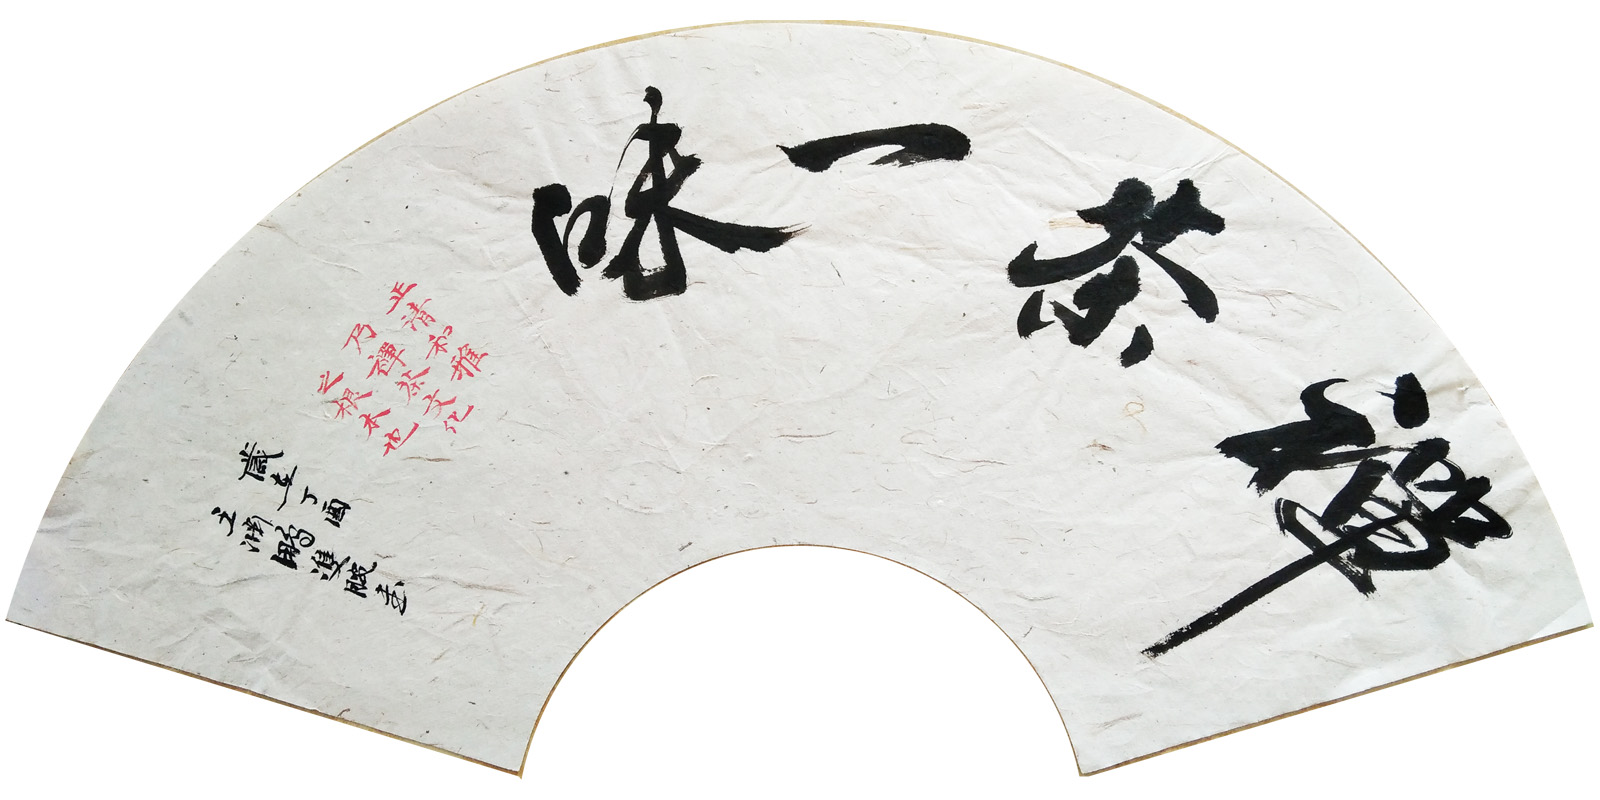 禪茶一味
正清和雅
乃禪茶文化
之根本也
歲在丁酉
王渊鵬雙腕書